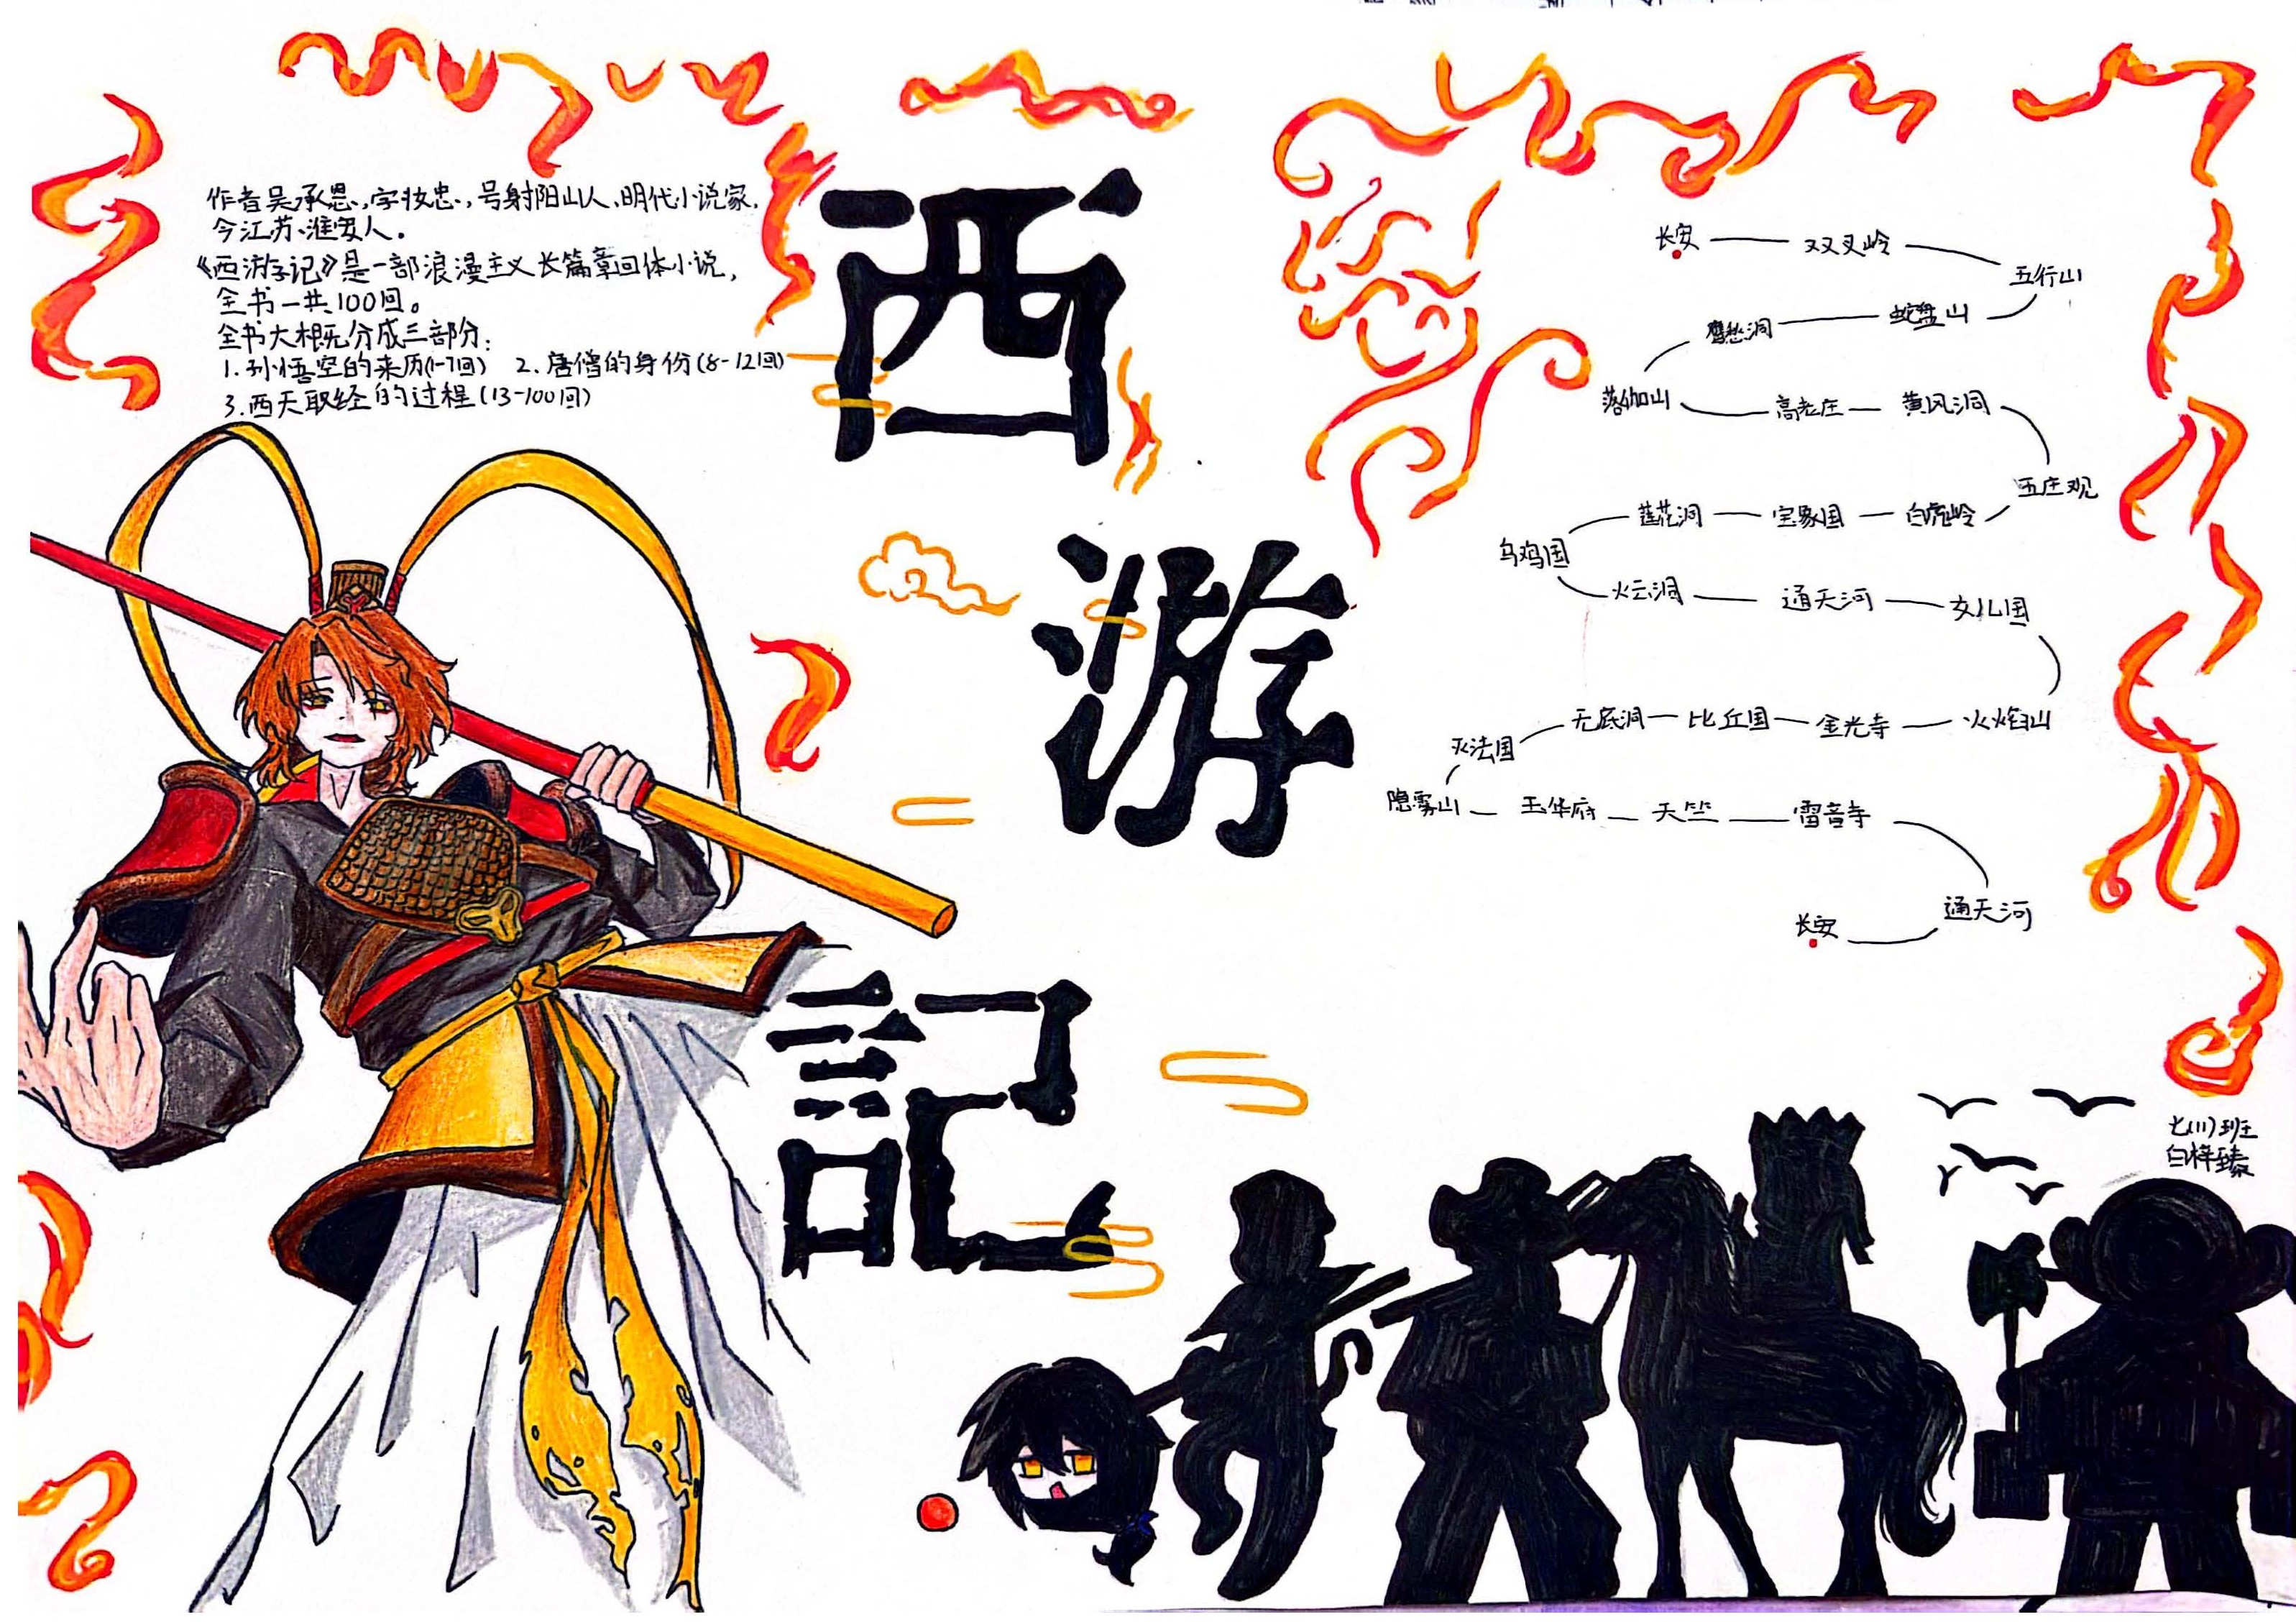 作者吴承恩,字妆忠,号射阳山人,明代小说家,
今江苏淮安人。
《西游记》是一部浪漫主义长篇章回体小说,
全书一共100回。
全书大概分成三部分:
1.孙悟空的来历(1-7回) 2.唐僧的身份(8-12回)
3.西天取经的过程(13-100回)
西
游
記
长安 双叉岭
五行山
鹰愁涧 蛇盘山
落伽山 高老庄 黄风洞
五庄观
莲花洞 宝象国 白虎岭
乌鸡国
火云洞 通天河 女儿国
无底洞 比丘国 金光寺 火焰山
灭法国
隐雾山 玉华府 天竺 雷音寺
长安 通天河
七(11)班
白梓臻